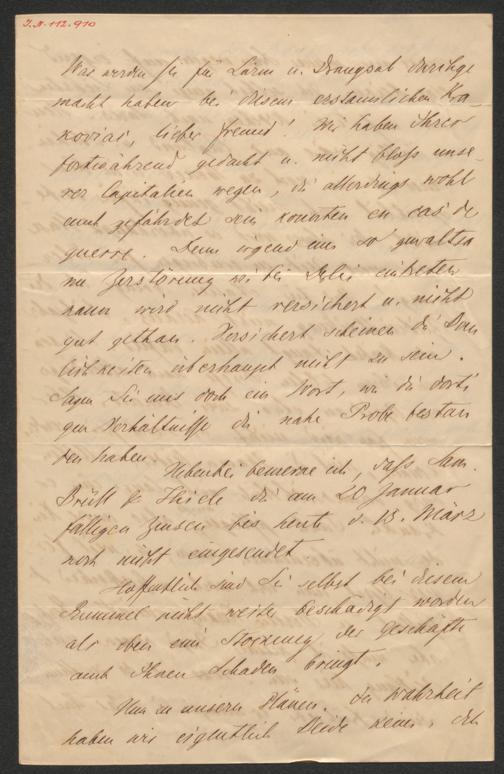 I.N. 112.910
Was werden Sie für Lärm u. Drangsal durchge
macht haben bei diesem erstaunlichen Kra
, lieber Freund! Wir haben Ihrer
fortwährend gedacht u. nicht bloß unse-
rer Capitalien wegen, die allerdings wohl
auch gefährdet sein konnten en cas de
guerre. Denn irgend eine so gewaltsa
me Zerstörung wie bei eintreten
kann wird nicht versichert u. nicht
gut gethan. Versichert scheinen die Bau
lichkeiten überhaupt nicht zu sein.
Sagen Sie uns doch ein Wort, wie die dorti
gen Verhältnisse die nahe Probe bestan
den haben.
Nebenbei bemerke ich, daß Sam.
& Thiele die am 20 Januar
fälligen Zinsen bis heute d. 18. März
noch nicht eingesendet
Hoffentlich sind Sie selbst bei diesem
Rummel nicht weiter beschädigt worden
als eben eine Stockung der Geschäfte
auch Ihnen Schaden bringt.
Nun zu unsern Plänen. In Wahrheit
haben wir eigentlich Beide keine, ich